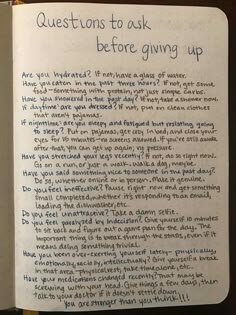 Questions to ask
before giving up
Are you hydrated? If not, have a glass of water.
Have you eaten in the past three hours? If not, get some
food - something with protein, not just simple carbs.
Have you showered in the past day? If not, take a shower now.
If daytime: are you dressed? If not, put on clean clothes
that aren't pajamas.
If nighttime: are you sleepy and fatigued but resisting going
to sleep? Put on pajamas, get cozy in bed, and close your
eyes for 15 minutes - no screens allowed. If you're still awake
after that, you can get up again; no pressure.
Have you stretched your legs recently? If not, do so right now.
Go on a run, or just a walk - walk a dog, maybe.
Have you said something nice to someone in the past day?
Do so, whether online or in person. Make it genuine.
Do you feel ineffective? Pause right now and get something
small completed, whether it's responding to an email,
loading the dishwasher, etc.
Do you feel unattractive? Take a damn selfie.
Do you feel paralyzed by indecision? Give yourself 10 minutes
to sit back and figure out a game plan for the day. The
important thing is to break through the stasis, even if it
means doing something trivial.
Have you been over-exerting yourself lately - physically,
emotionally, socially, intellectually? Give yourself a break
in that area - physical rest, take time alone, etc.
Have your medications changed recently? That may be
screwing with your head. Give things a few days, then
talk to your doctor if it doesn't settle down.
You are stronger than you think!!!